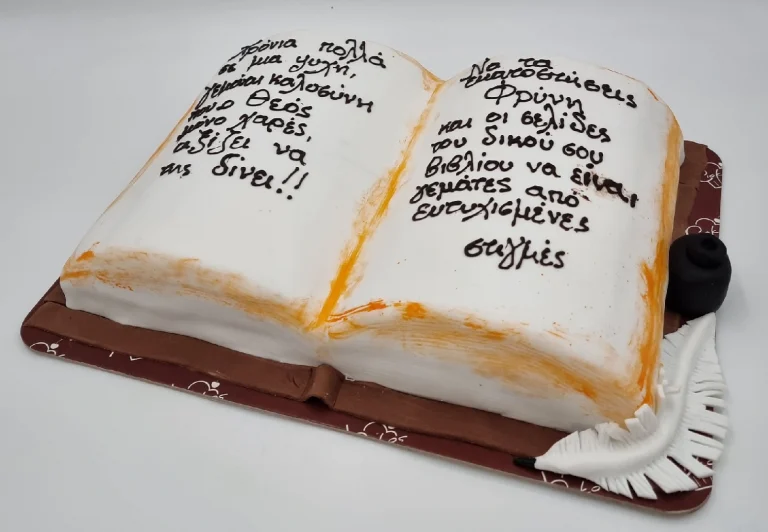 Χρόνια πολλά
σε μια ψυχή,
γεμάτη καλοσύνη
που ο Θεός
μόνο χαρές,
αξίζει να
της δίνει!!
Να τα
εκατοστήσεις
Φρύνη
και οι σελίδες
του δικού σου
βιβλίου να είναι
γεμάτες από
ευτυχισμένες
στιγμές